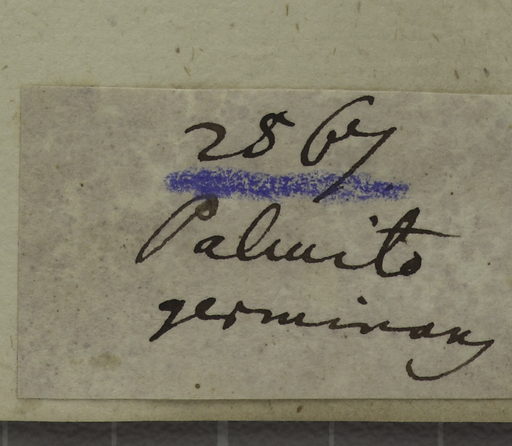 2867
Palmito
germinans